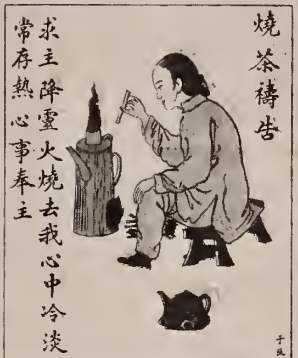 燒茶禱告
求主降靈火燒去我心中冷淡
常存熱心事奉主